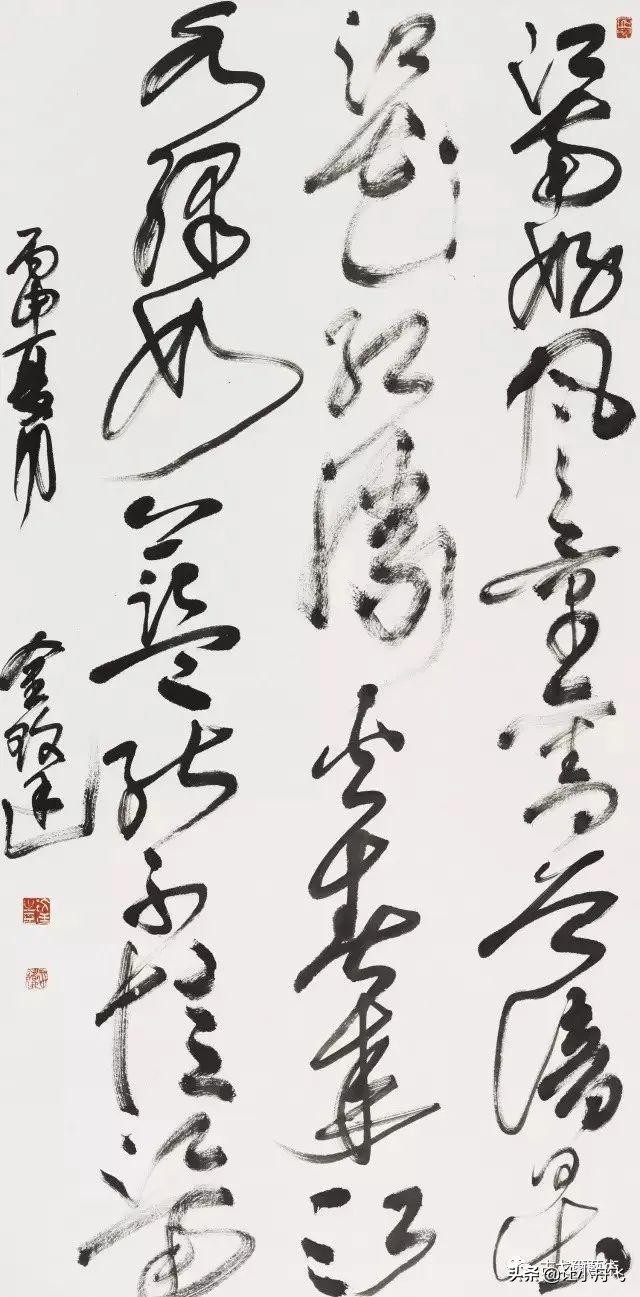 江南好風景舊曾諳日出
江花紅勝火春來江
水綠如藍能不憶江南
丙申夏月
金
头条